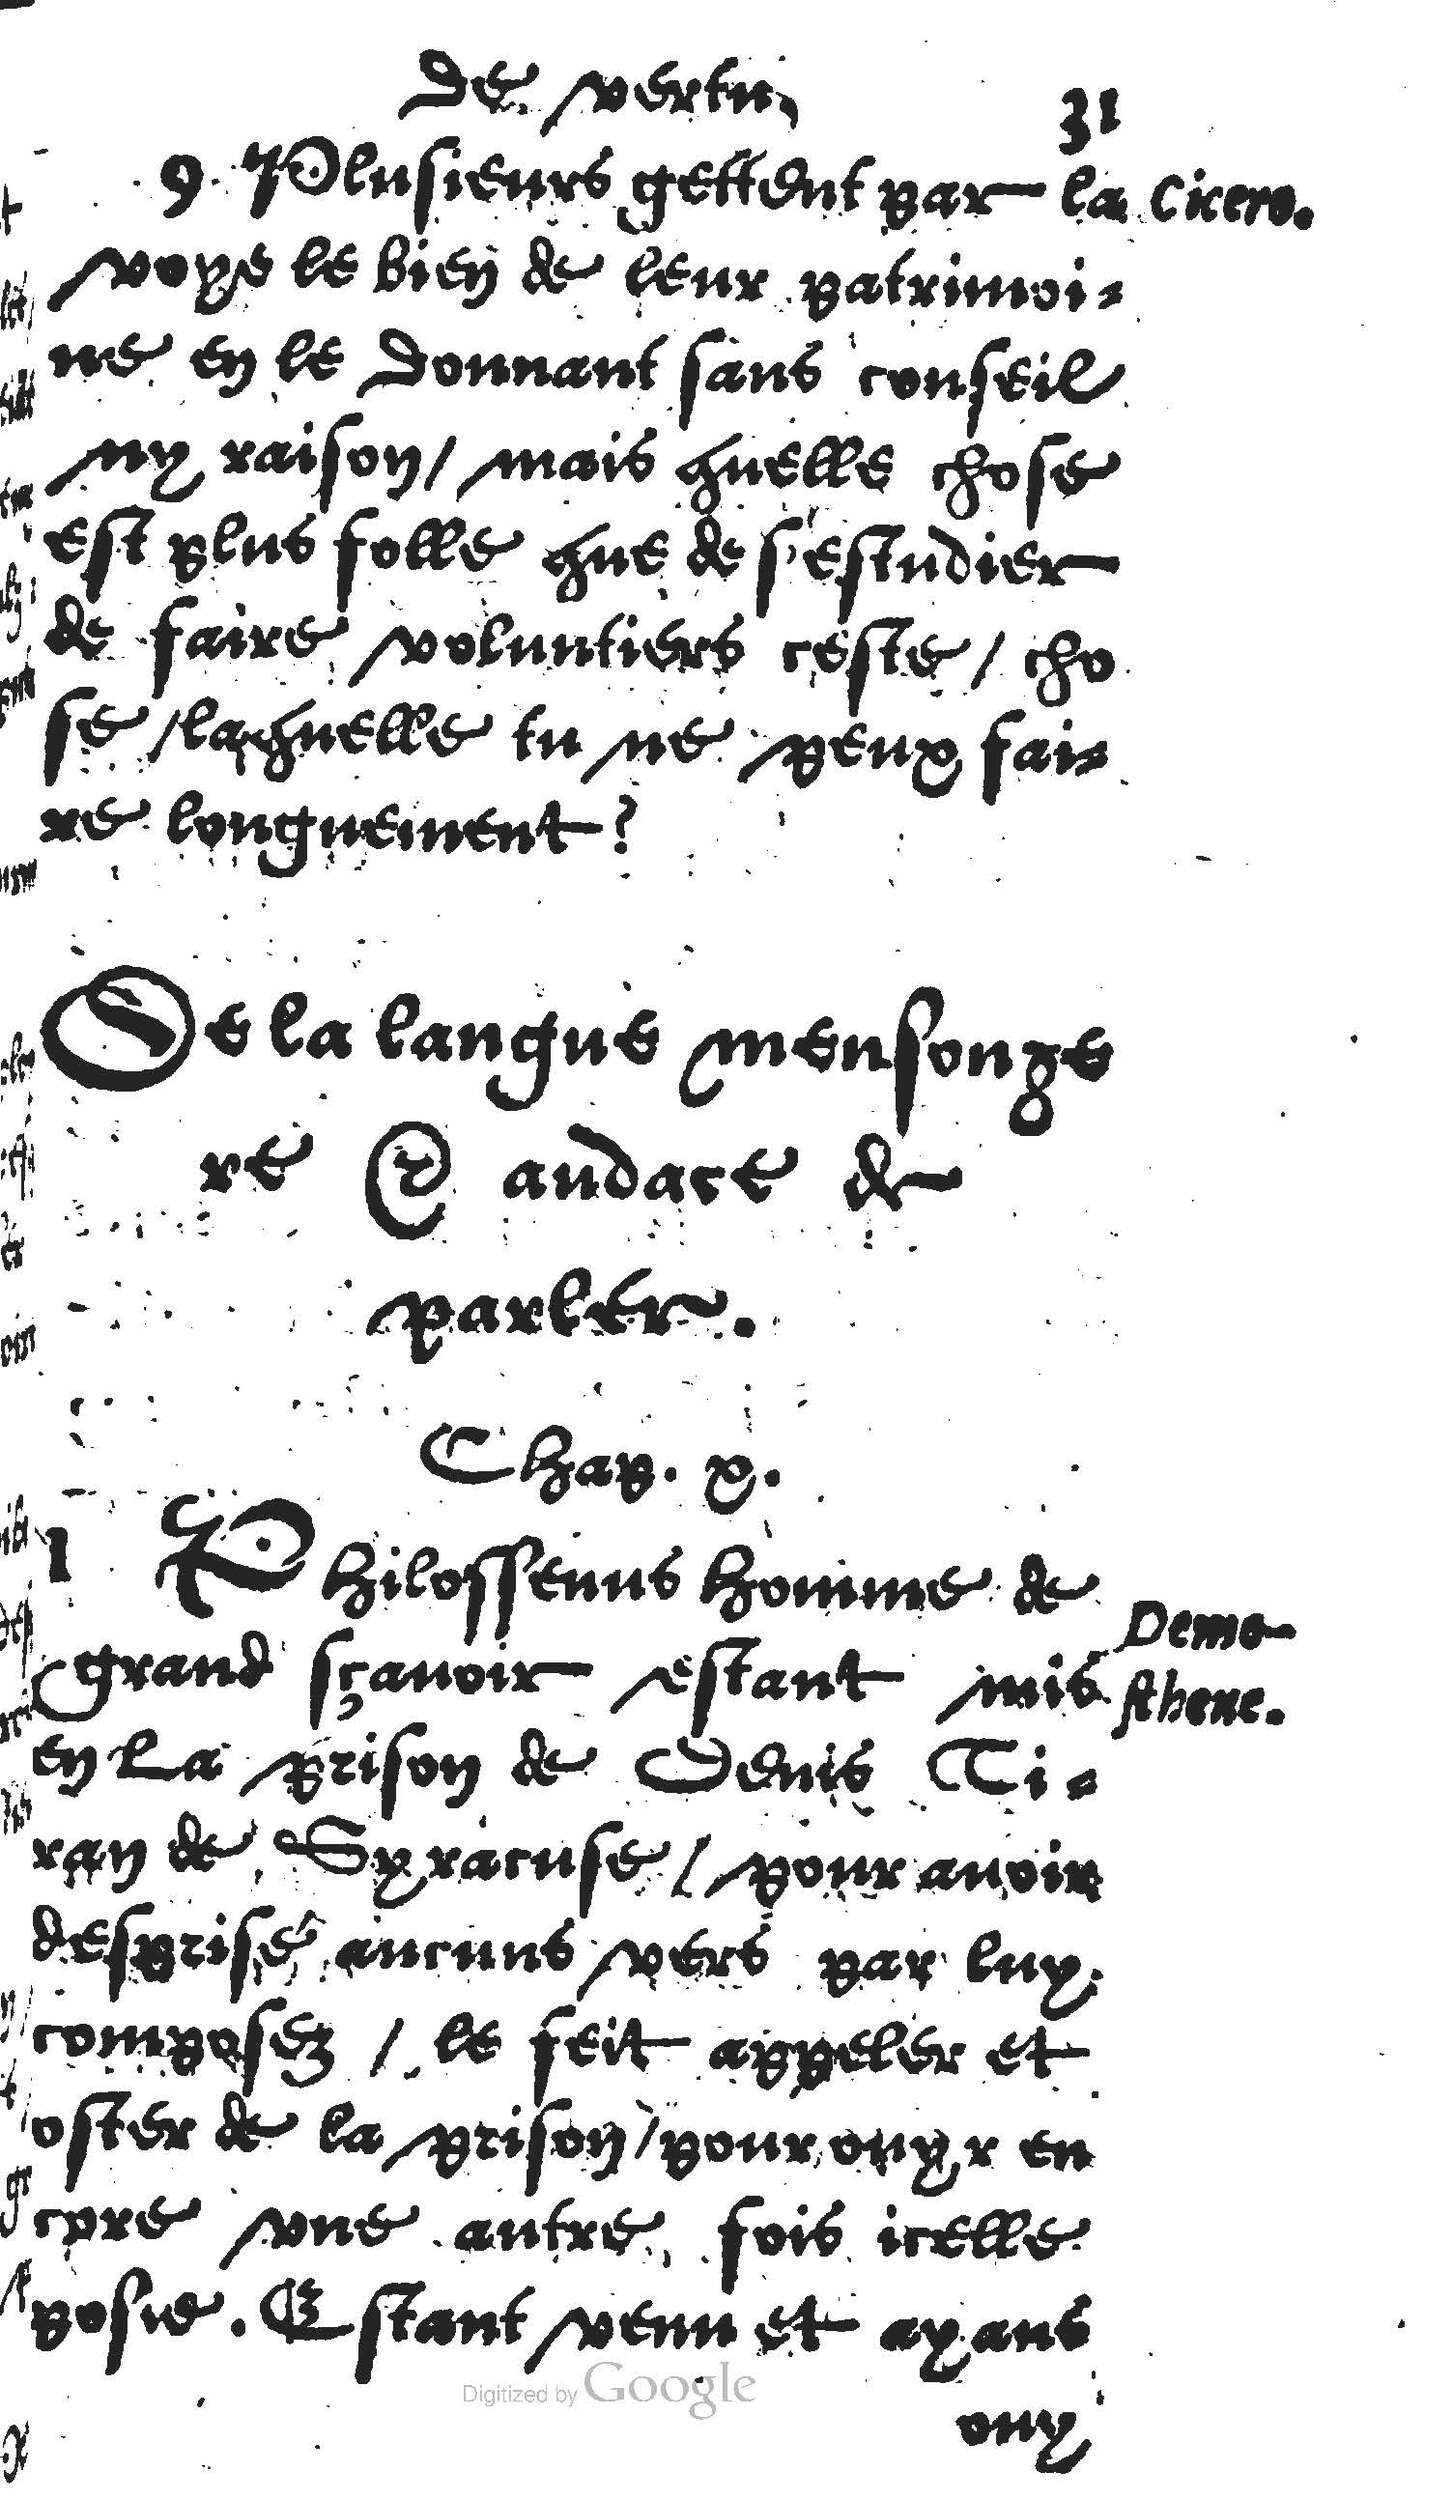 de vertu, 31
9 Plusieurs gettent par la Cicero.
voye le bien de leur patrimoi-
ne en le donnant sans conseil
ny raison/ mais quelle chose
est plus folle que de s'estudier
de faire voluntiers ceste / cho
se /laquelle tu ne peux fai-
re longuement?
De la langue mensonge
re & audace de
parler.
Chap. x.
1 Philossenus homme de
grand sçauoir estant mis Demo-
sthene.
en la prison de Denis Ti-
ran de Syracuse / pour auoir
desprisé aucuns vers par luy
composez / le feit appeler et
oster de la prison/pour ouyr en
core vne autre fois icelle
posie. Estant venu et ayans
Digitized by Google
ouy